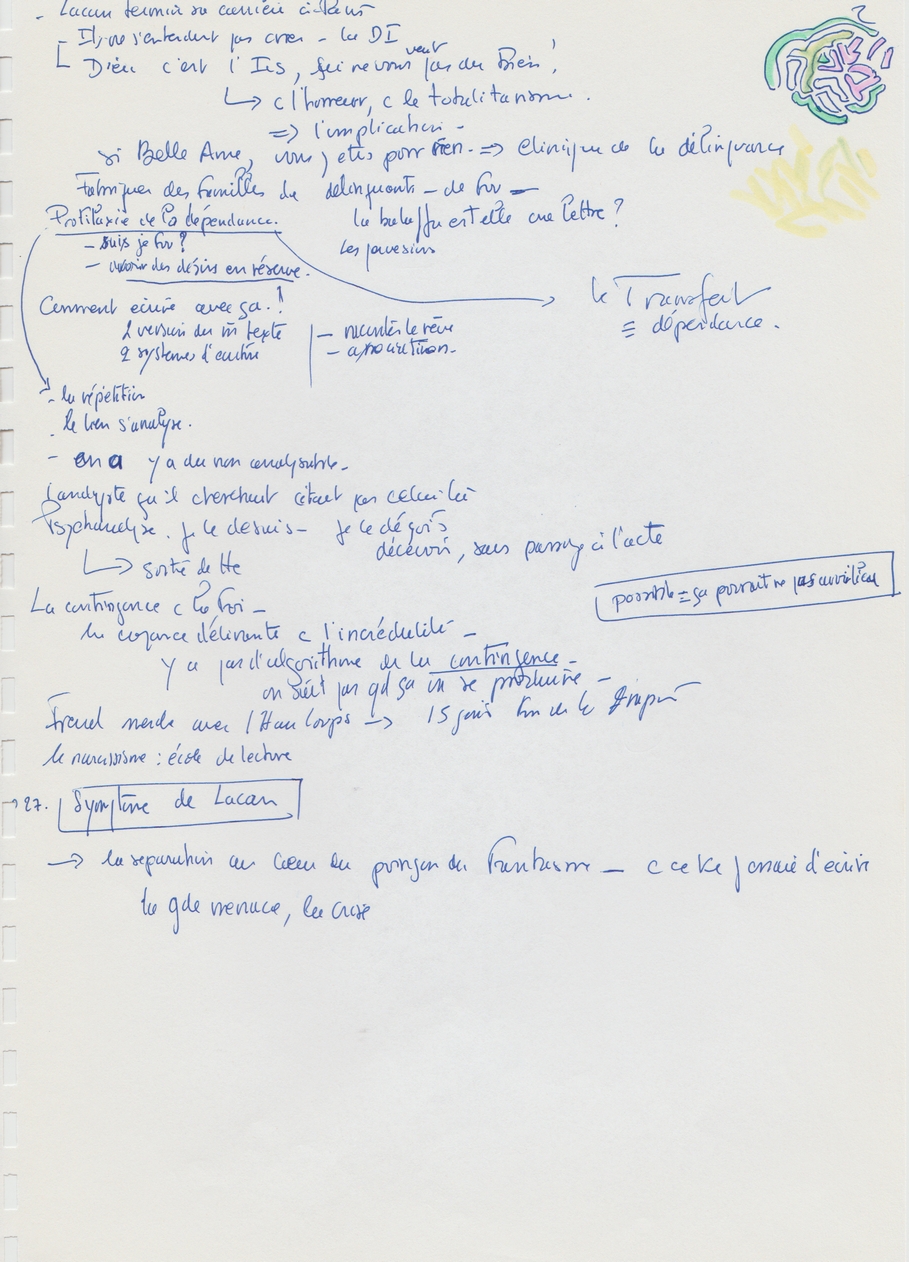 - Lacan termin sa carrière
- Ils ne s'entendent pas avec - la DI
Dieu c'est l'Ics, qui ne vous veut pas du Bien,
↳ c l'horreur, c le totalitarisme.
=> l'implication -
si Belle Ame, vous y etes pour rien. => clinique de la délinquance
Fabriquer des familles de délinquants - de fou -
Profilaxie de la dépendance.
la balafre est elle une lettre ?
- suis je fou ?
- avoir des désirs en réserve.
le Transfert
≡ dépendance.
Comment écrire avec ça.!
2 version du m texte
2 systemes d'écriture
- raconter le rêve
- association.
- la répétition
- le lien s'analyse.
- on a y a du non analysable.
L'analyste qu'il cherchait c'était pas celui là
Psychanalyse. je le desuis - je le déçois
décevoir, sans passage à l'acte
↳ sortie de
possible = ça pourrait ne pas
La contingence c la foi -
la croyance délirante c l'incrédulité -
y a pas d'algorithme de la contingence -
on sait pas qd ça va se produire -
Freud merde avec l'H aux loups -> 15 jours
le narcissisme : école de lecture
-> 27. Symptôme de Lacan
-> la séparation au cœur du poinçon du Fantasme - c ce ke j essaie d'écrire
la gde menace, la crise